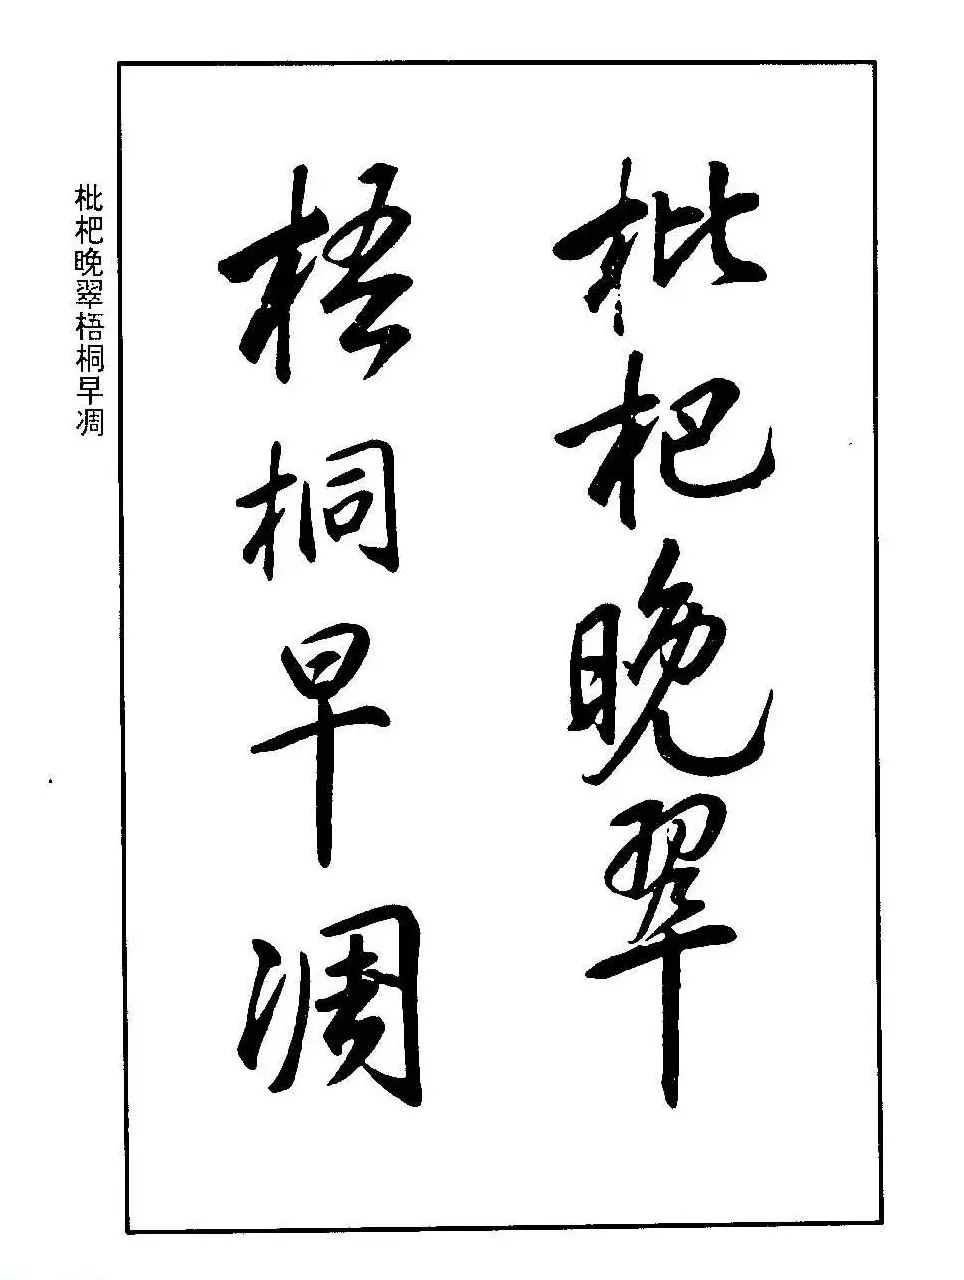 枇杷晚翠
梧桐早凋
枇杷晚翠梧桐早凋